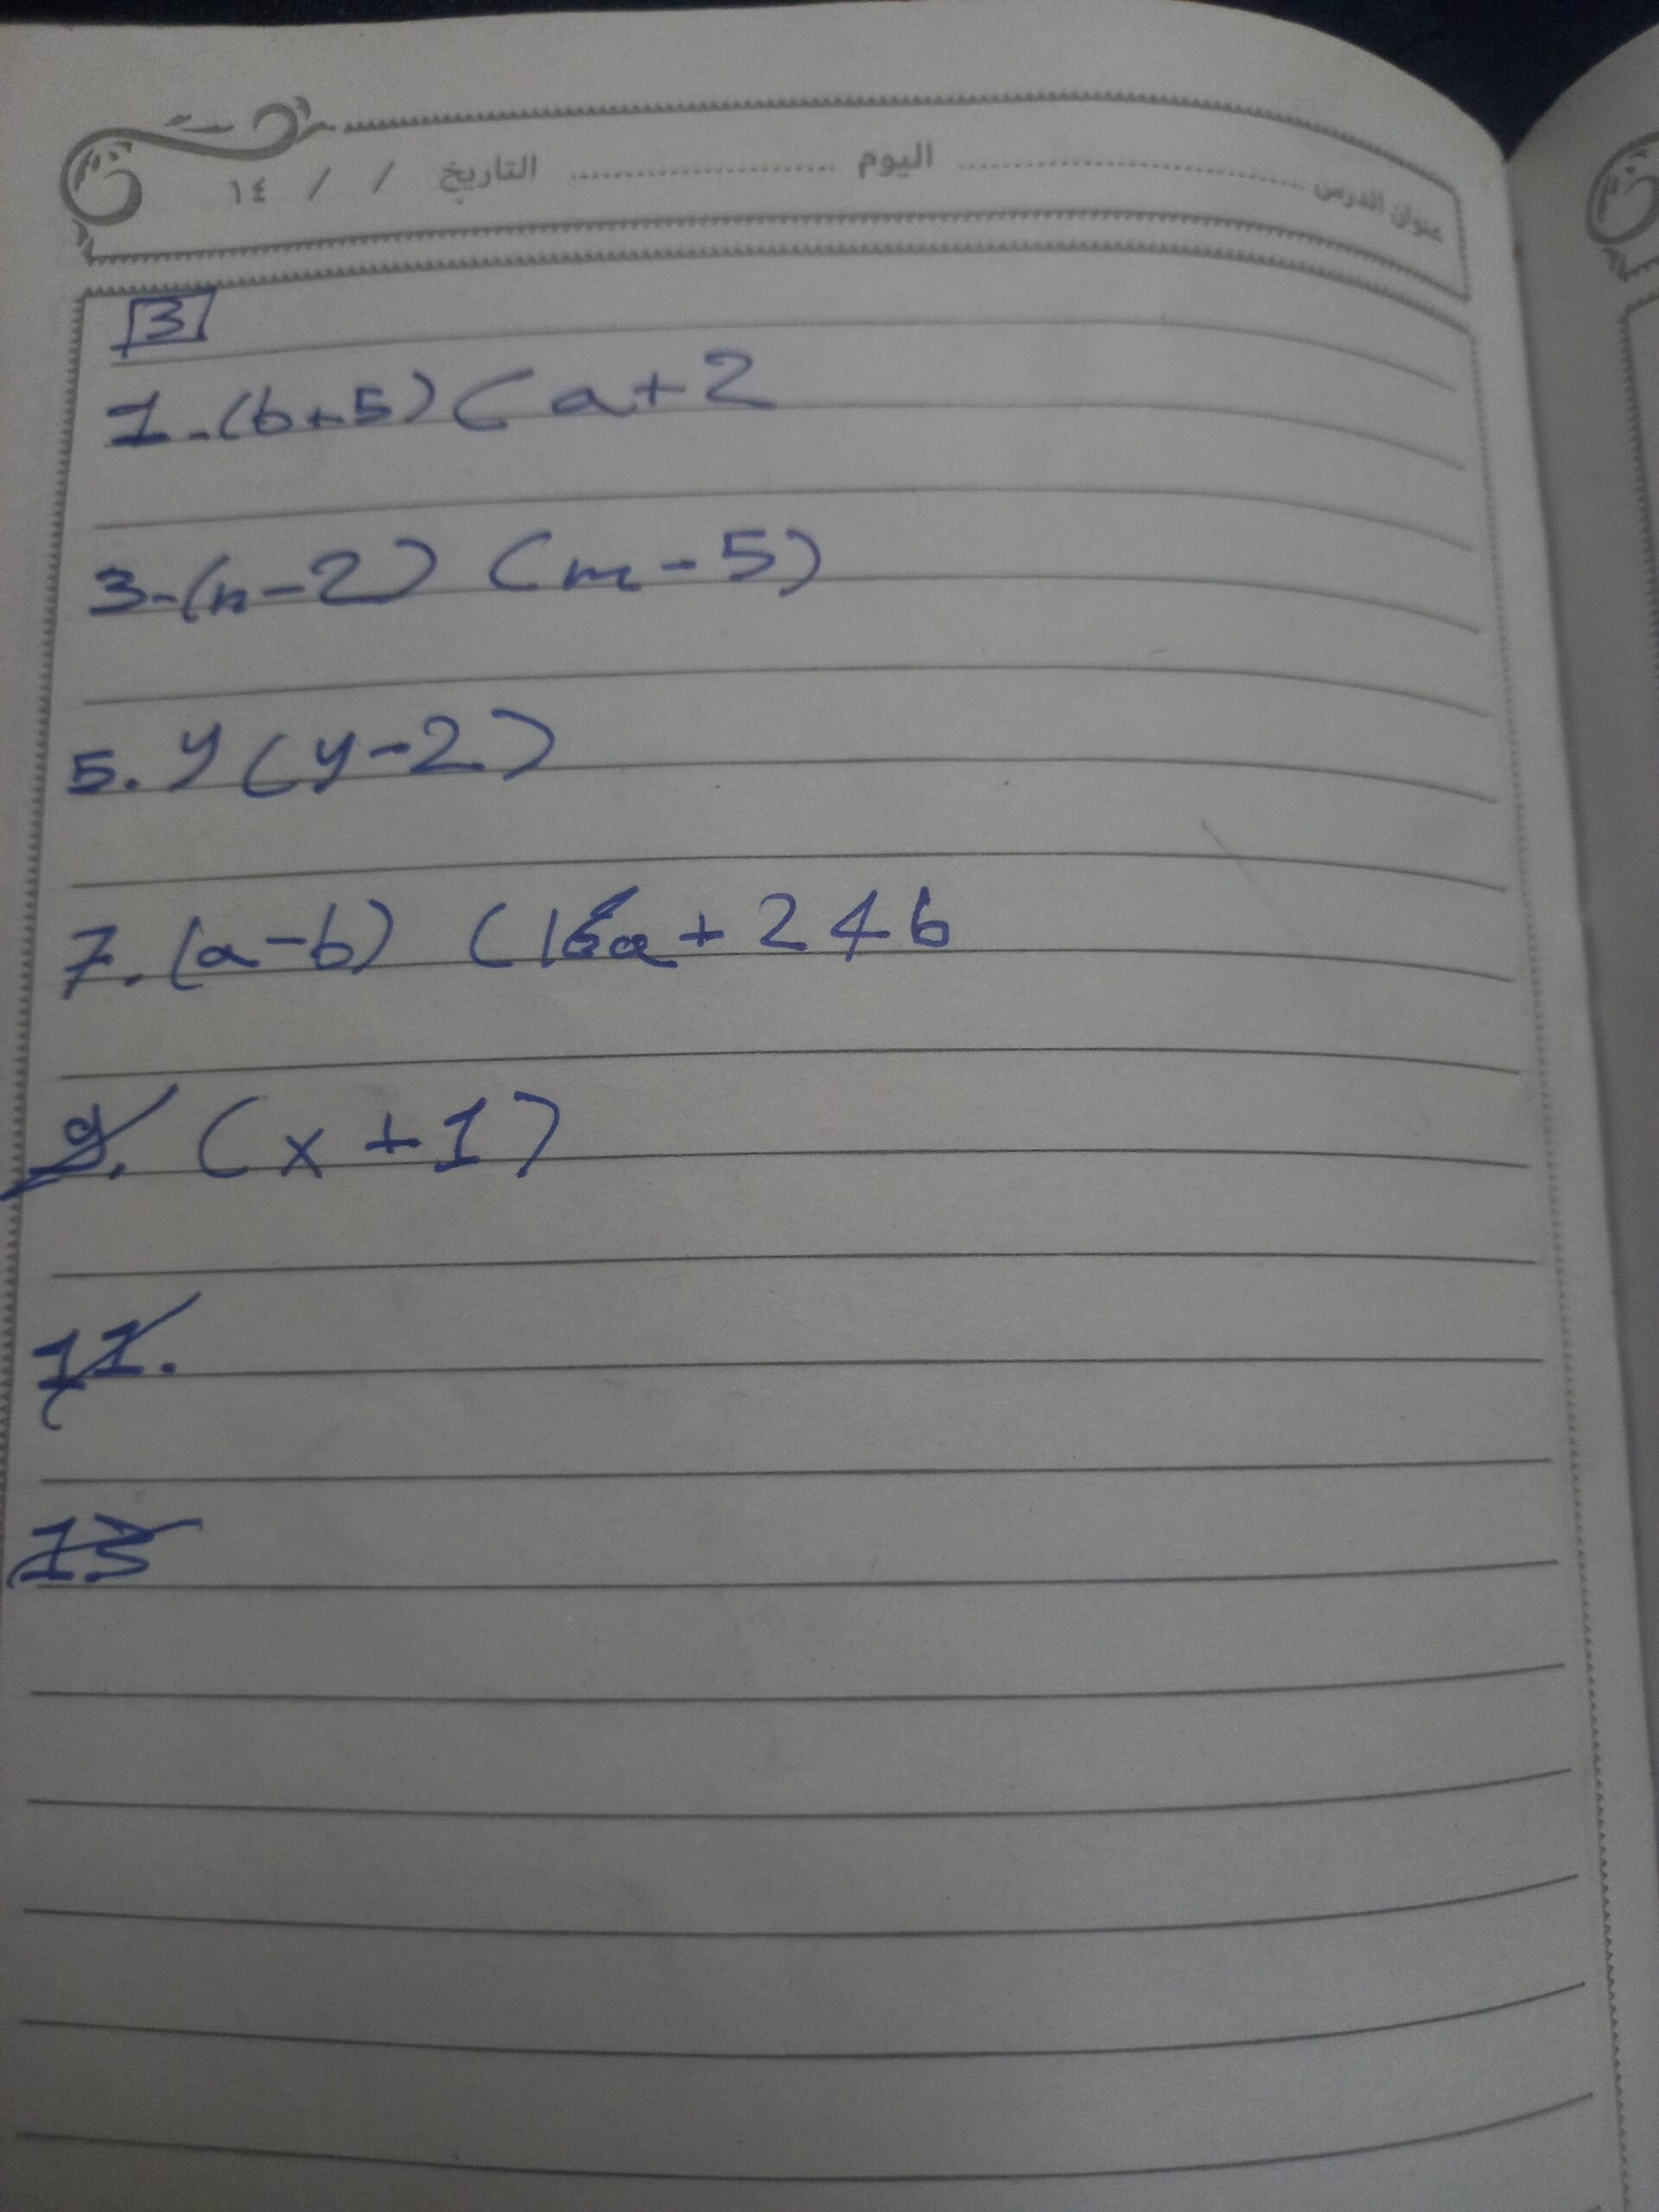 عنوان الدرس ........ اليوم ........ التاريخ / / ١٤
3
1.(b+5) (a+2
3-(n-2) (m-5)
5. y (y-2)
7. (a-b) (16a+24b
9. (x+1)
11.
13